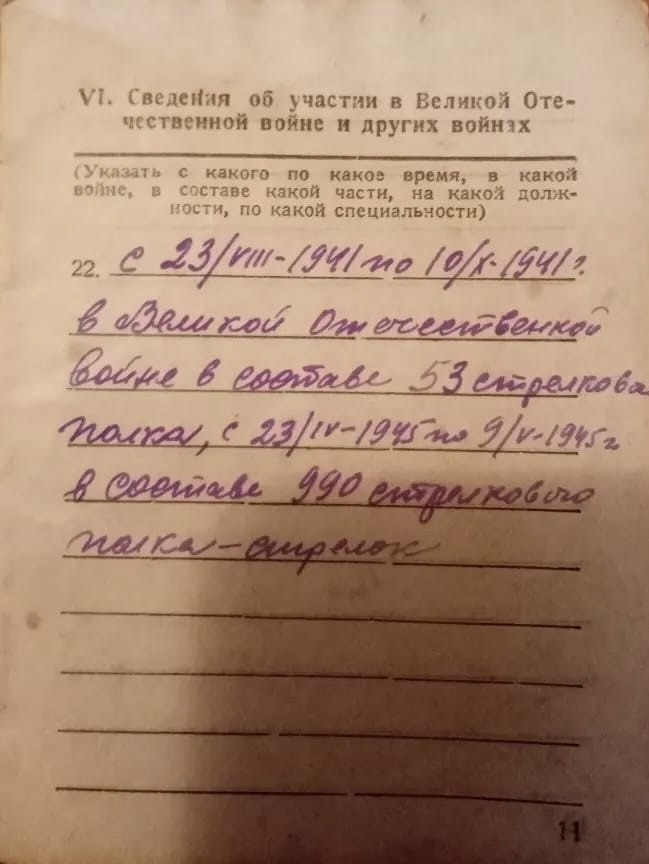 VI. Сведения об участии в Великой Оте-
чественной войне и других войнах
(Указать с какого по какое время, в какой
войне, в составе какой части, на какой долж-
ности, по какой специальности)
22. с 23/VIII-1941 по 10/X-1941 г.
в Великой Отечественной
войне в составе 53 стрелково
полка, с 23/IV-1945 по 9/V-1945 г
в составе 990 стрелкового
полка - стрелок
11